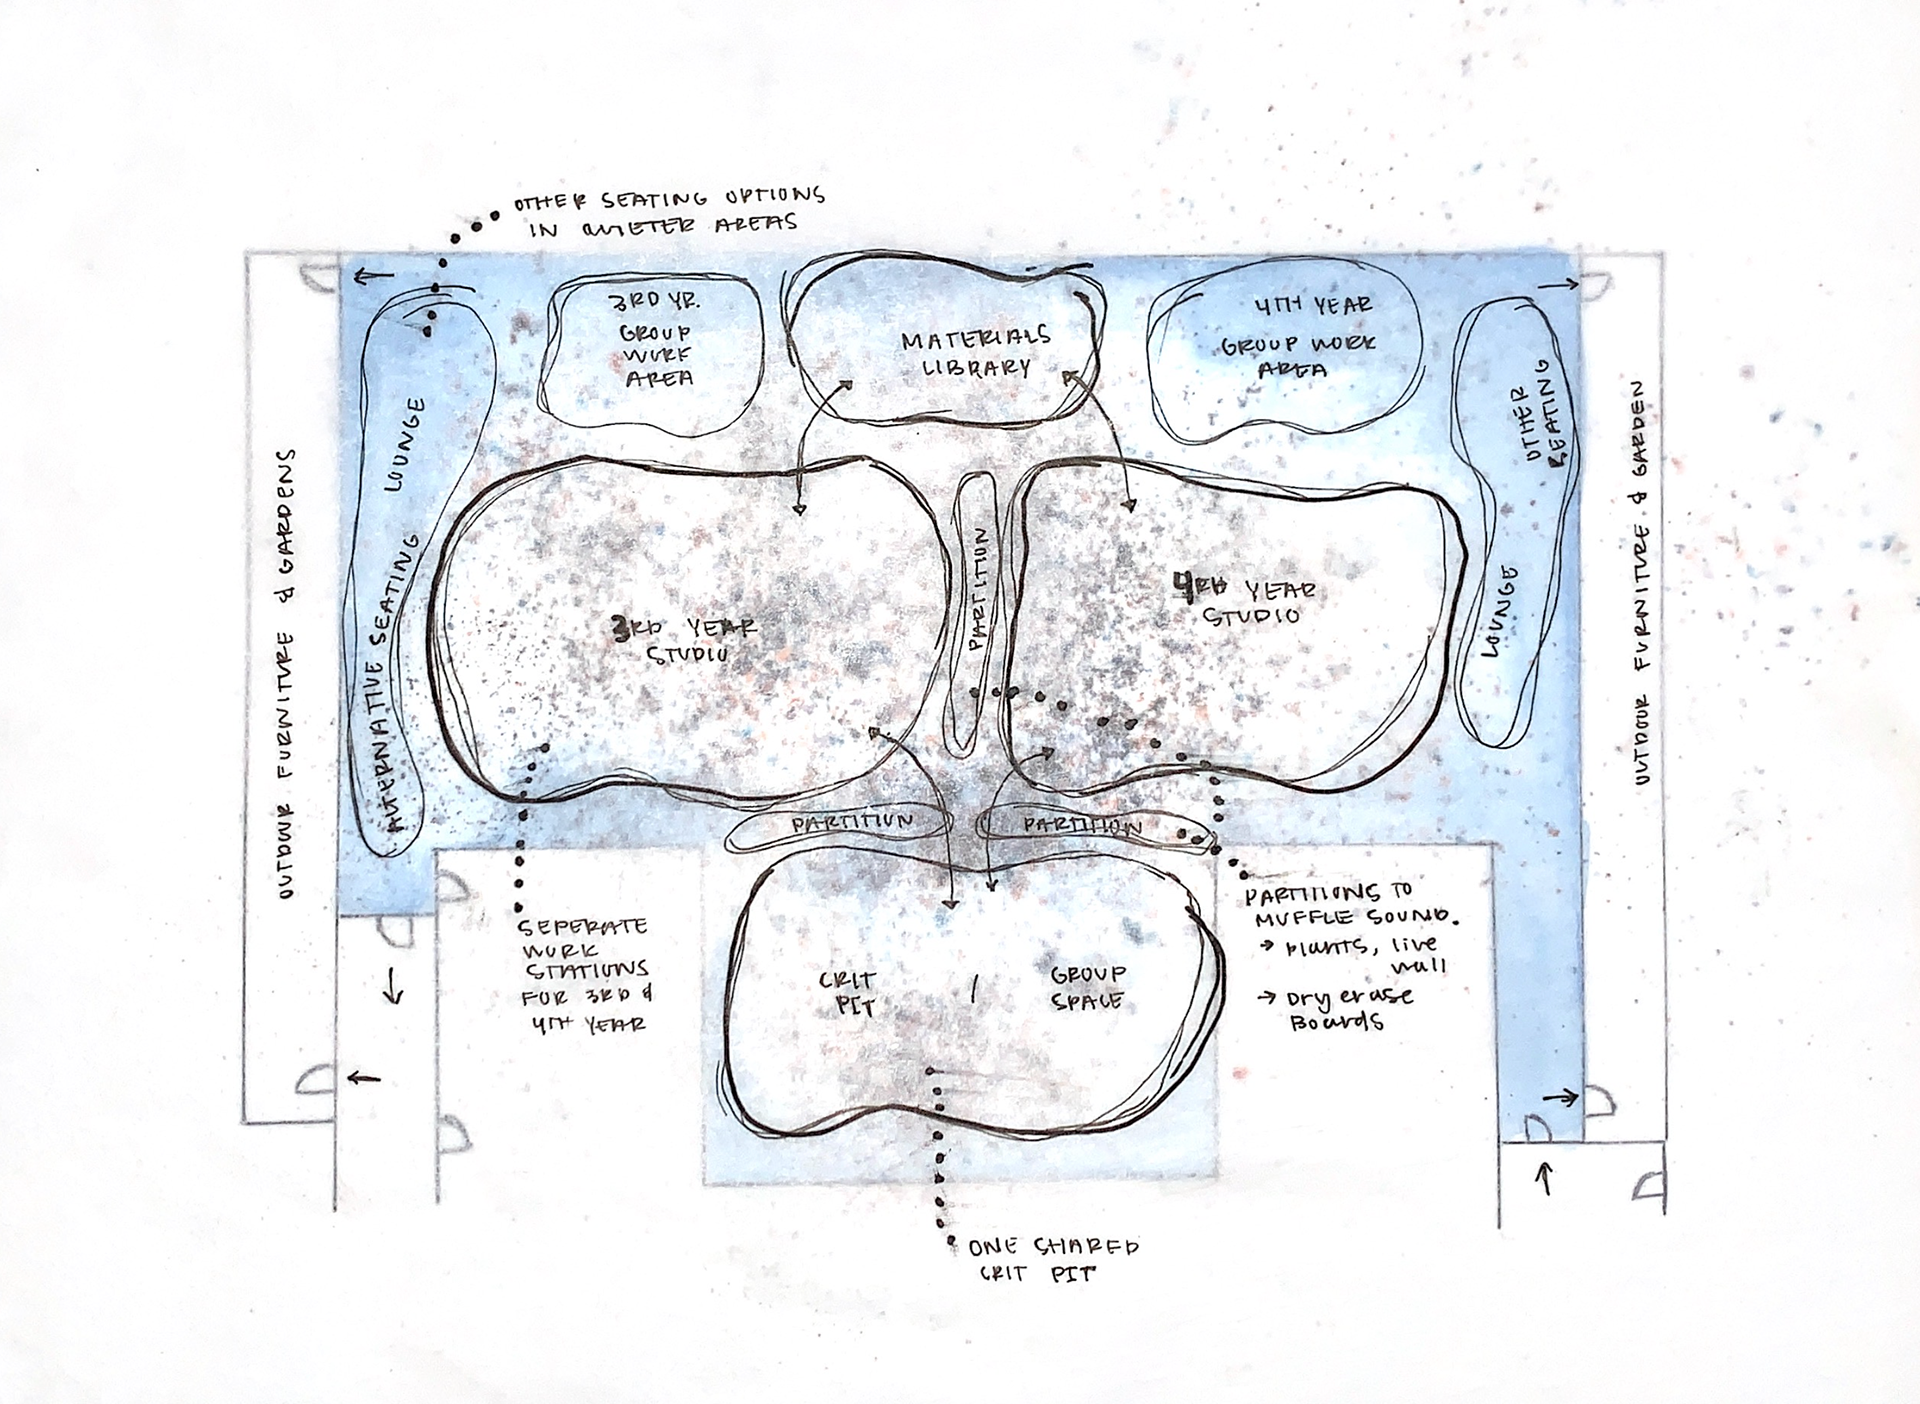 OTHER SEATING OPTIONS
IN QUIETER AREAS
3RD YR.
GROUP
WORK
AREA
MATERIALS
LIBRARY
4TH YEAR
GROUP WORK
AREA
ALTERNATIVE SEATING LOUNGE
OUTDOOR FURNITURE & GARDENS
3RD YEAR
STUDIO
PARTITION
4RD YEAR
STUDIO
OTHER
SEATING
LOUNGE
OUTDOUR FURNITURE & GARDEN
PARTITION
PARTITION
SEPERATE
WORK
STATIONS
FOR 3RD &
4TH YEAR
CRIT
PIT
/
GROUP
SPACE
PARTITIONS TO
MUFFLE SOUND.
→ Plants, live
wall
→ Dry erase
Boards
ONE SHARED
CRIT PIT